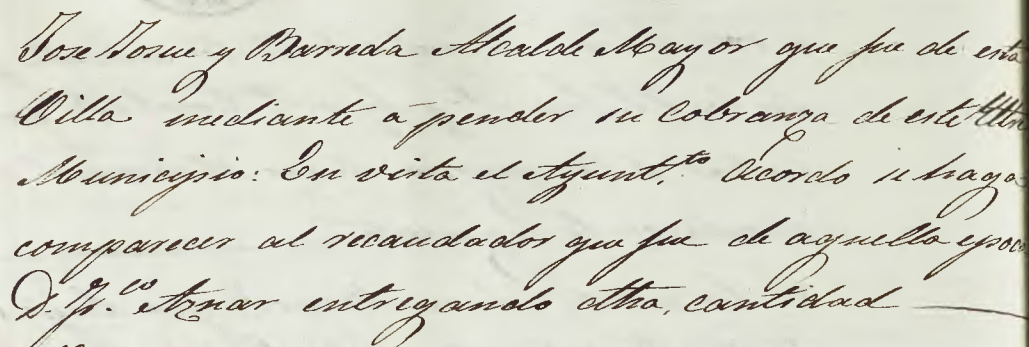 Jose Josue y Barreda Alcalde Mayor que fue de esta
Villa mediante á pender su Cobranza de este
Municipio: En vista el Ayunt.to Acordo se haga
comparecer al recaudador que fue de aquella epoca
D. Fr.co Aznar entregando dha, cantidad